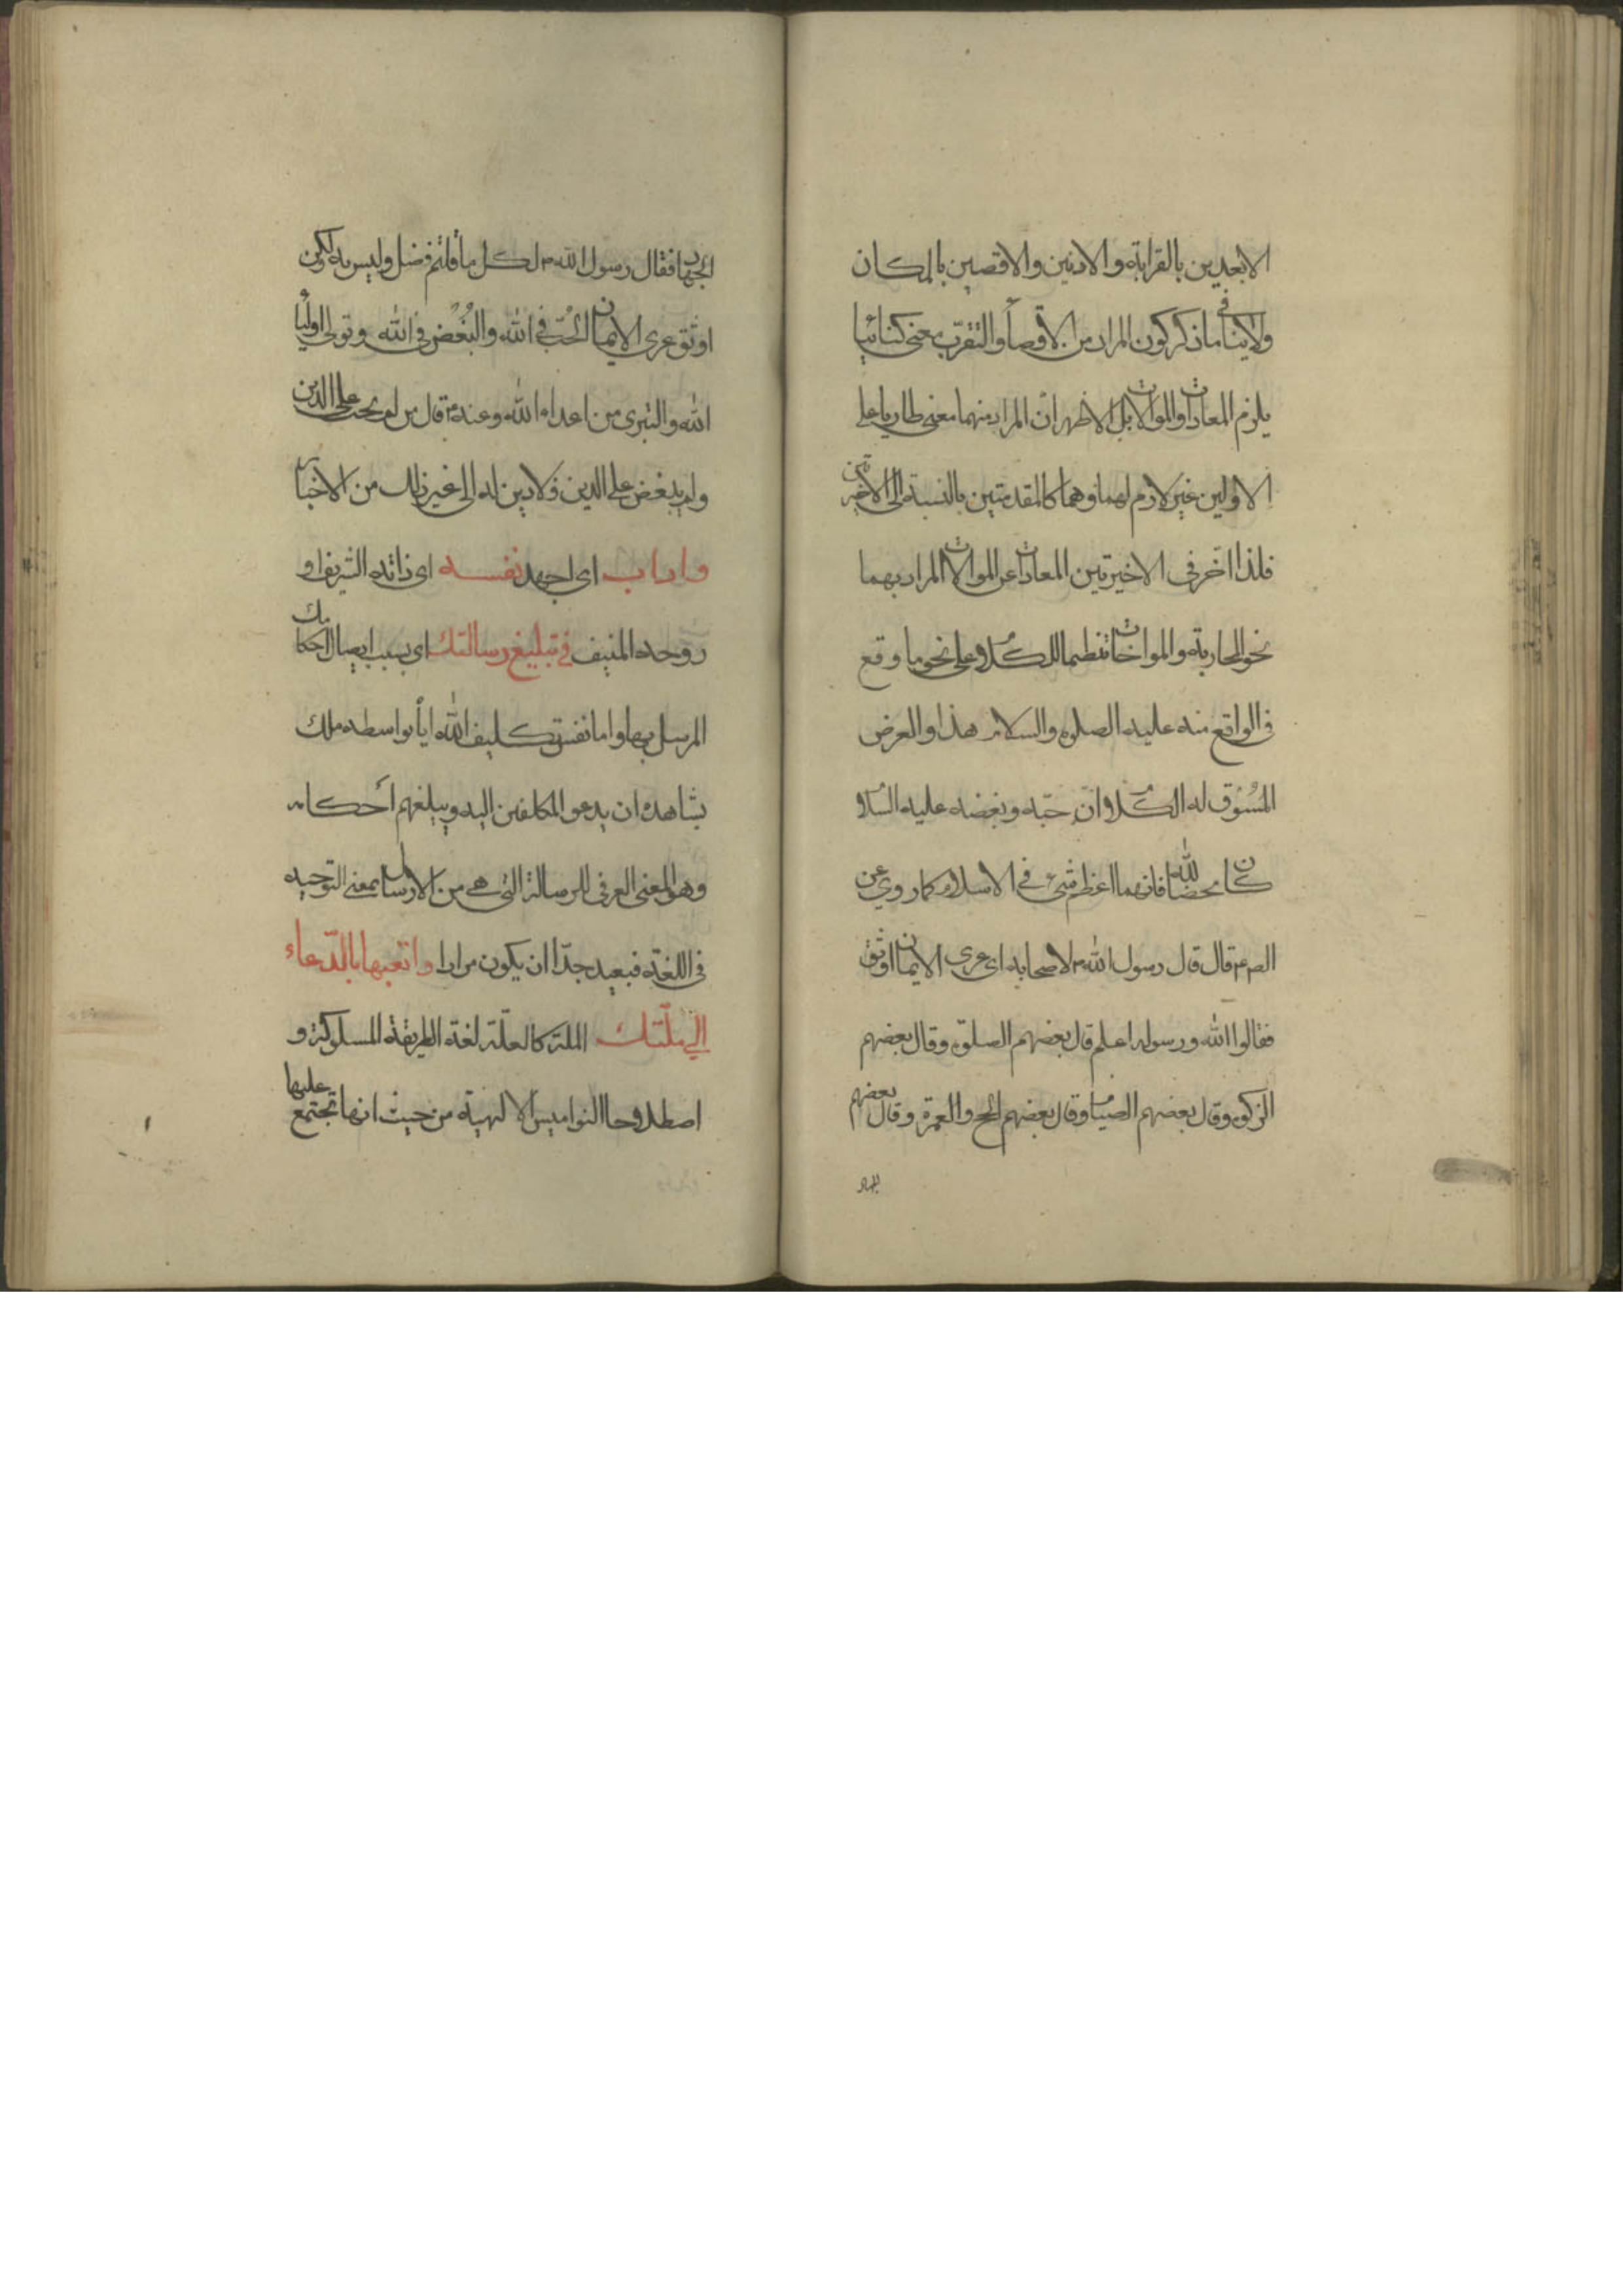 الابعدين بالقرابة والادنين والاقصين بالمكان
ولاينافي ماذكر كون المراد من الاقصاء والتقرب معنى كنائيا
يلزم المعادات والموالات بل الاظهر ان المراد منهما معنى طاريا على
الاولين غير لازم لهما وهما كالمقدمتين بالنسبة الى الاخيرتين
فلذا اخر في الاخيرتين المعادات عن الموالات المراد بهما
نحو المحاربة والموالخات تنظيما للكلام على نحو ما وقع
في الواقع منه عليه الصلوة والسلام هذا والغرض
المسوق له الكلام ان حبّه وبغضه عليه السلام
كان محضا لله فانهما اعظم شيء في الاسلام كما روي عن
الصم قال قال رسول الله ص لاصحابه اى عرى الايمان اوثق
فقالوا الله ورسوله اعلم قال بعضهم الصلوة وقال بعضهم
الزكوة وقال بعضهم الصيام وقال بعضهم الحج والعمرة وقال بعضهم
الجهاد
الجهاد فقال رسول الله ص لكل ما قلتم فضل وليس به ولكن
اوثق عرى الايمان الحُبّ في الله والبُغْض في الله وتولى اولياء
الله والتبرى من اعداء الله وعنه ع قال من لم يحب على الدين
ولم يبغض على الدين فلا دين له الى غير ذلك من الاخبار
واداب اى اجهد نفسه اى ذاته الشريف او
روحه المنيف في تبليغ رسالتك اى بسبب ايصال احكامك
المرسل بها واما نفس تكليف الله اياه بواسطه ملك
يشاهده ان يدعو المكلفين اليه ويبلغهم احكامه
وهو المعنى العرفى للرسالة التى هي من الارسال بمعنى التوجيه
في اللغة فبعيد جدّا ان يكون مرادا واتعبها بالدّعاء
الي ملّتك الملة كالعلّة لغة الطريقة المسلوكة و
اصطلاحا النواميس الالهية من حيث انها تجتمع عليها